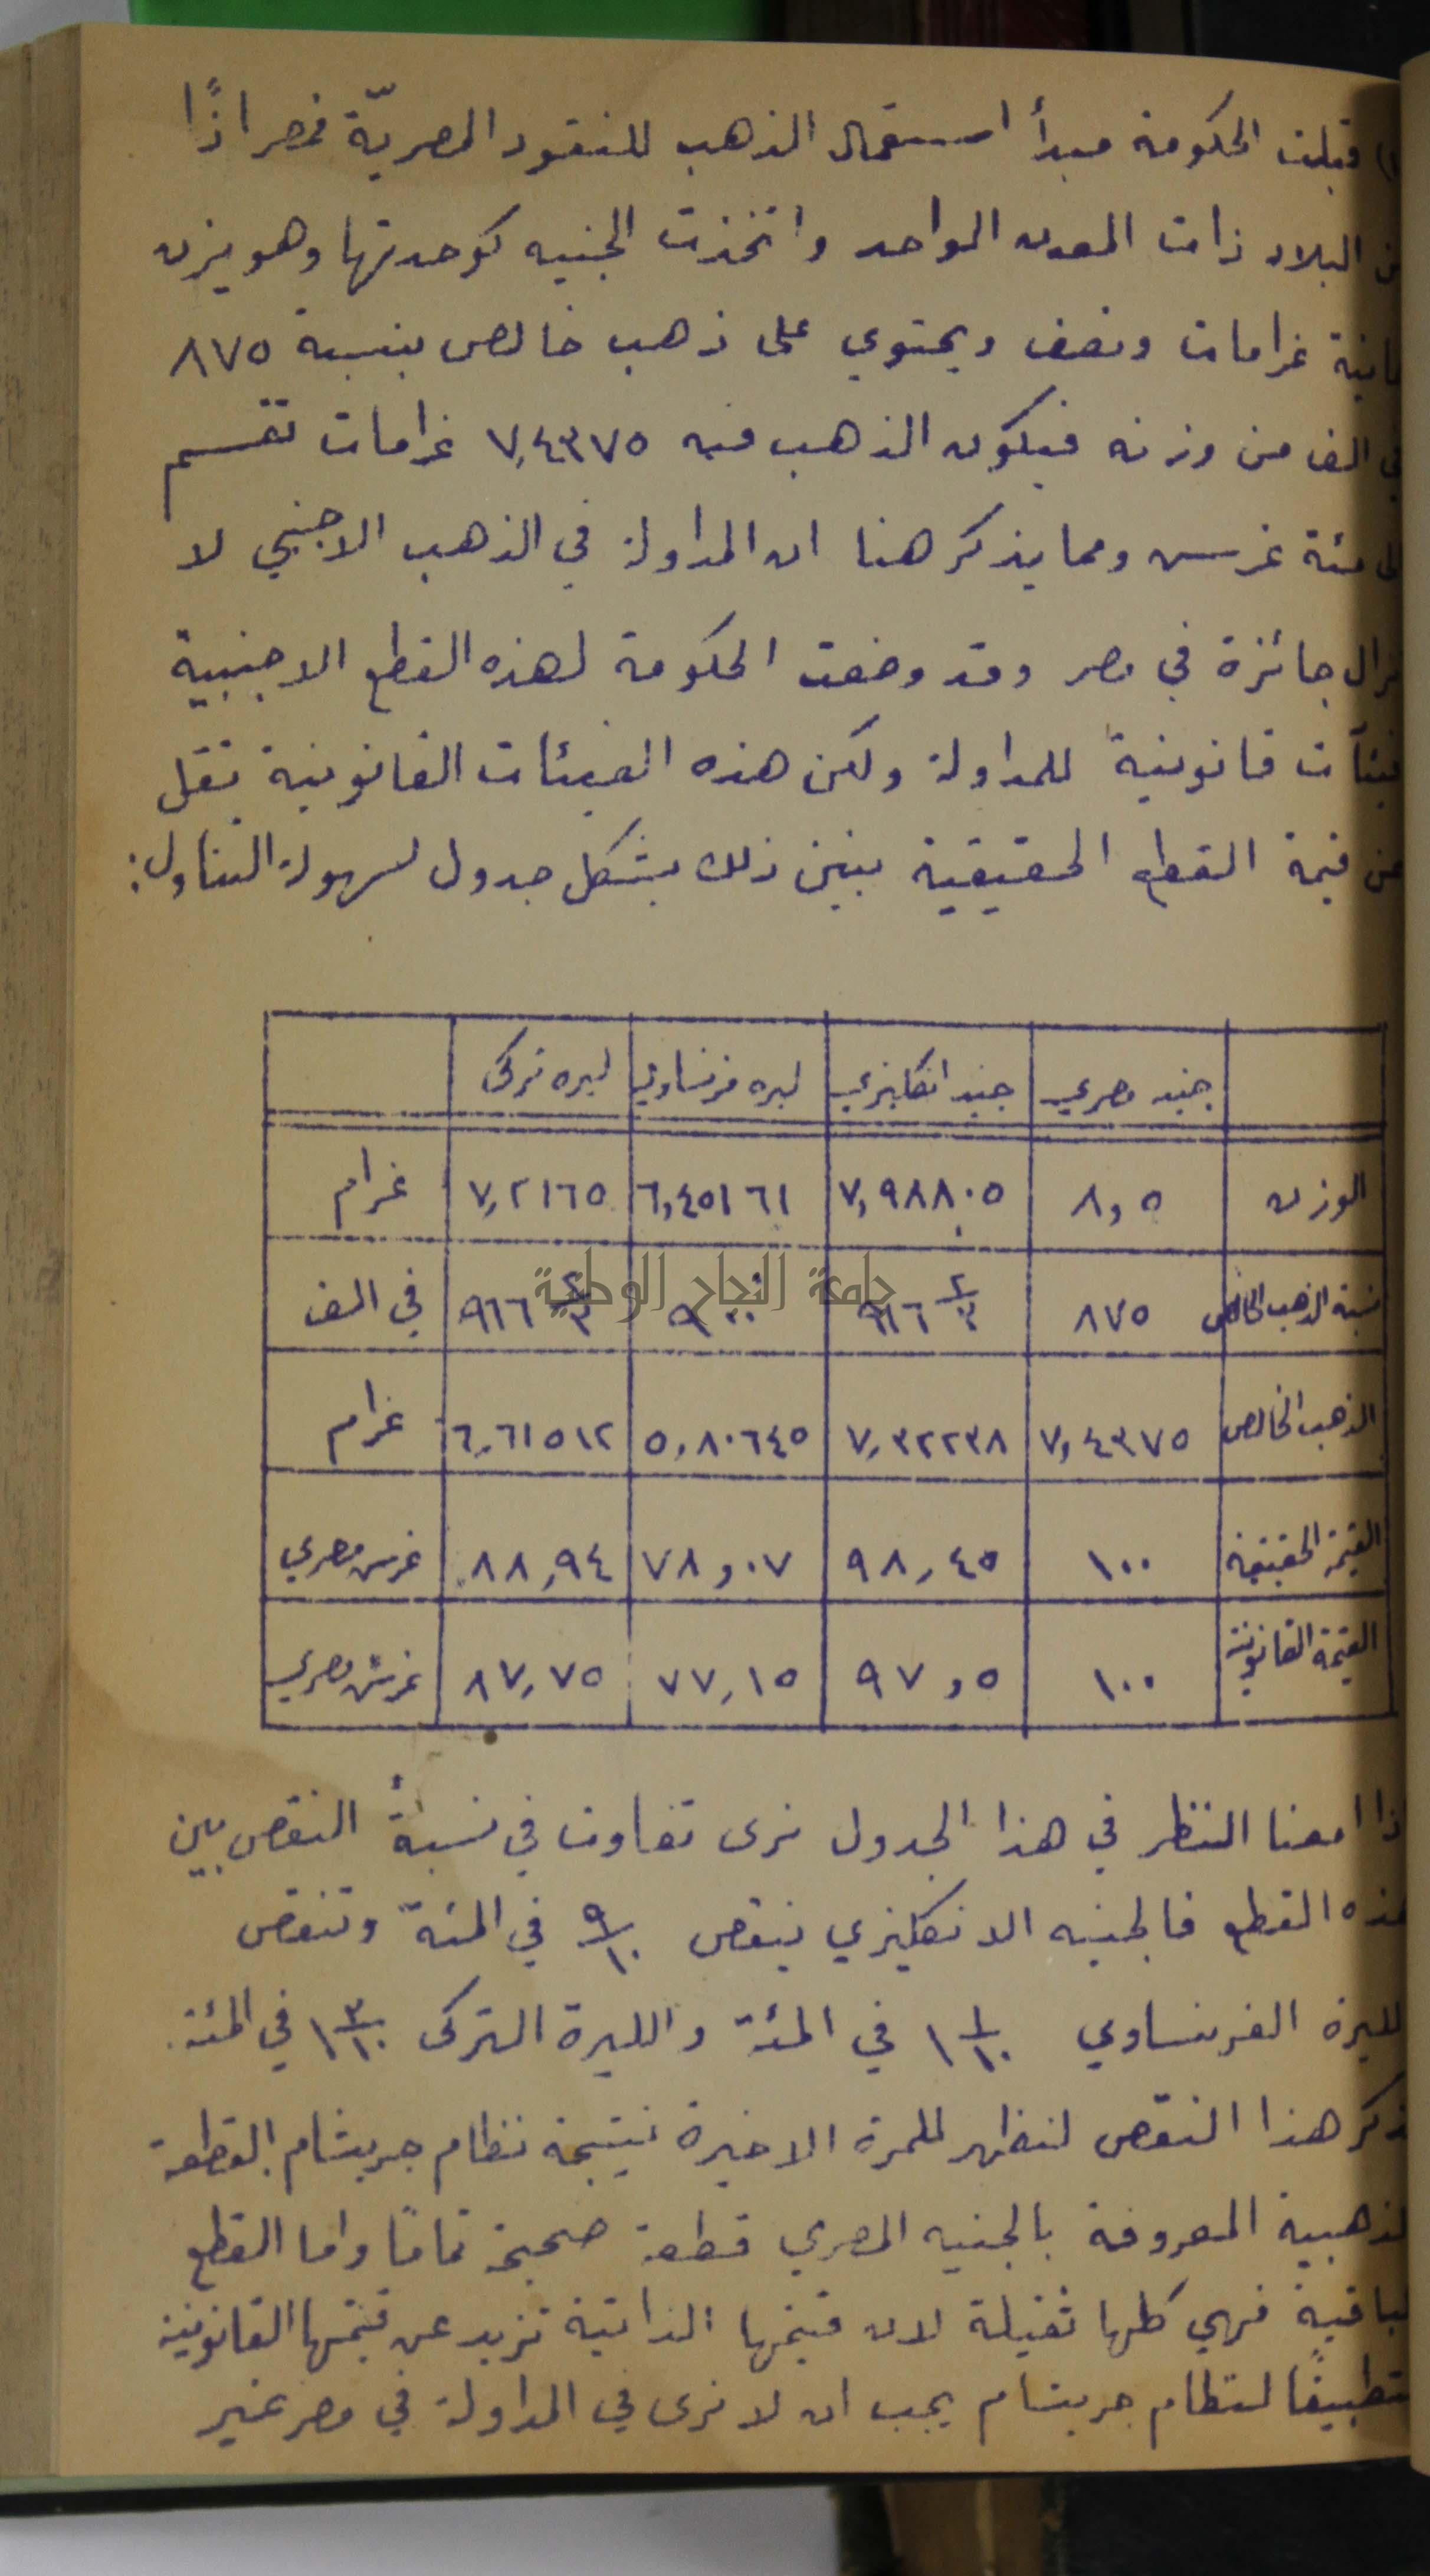 قبلت الحكومة مبدأ استعمال الذهب للنقود المصريّة فمصر اذًا
البلاد ذات المعدن الواحد واتخذت الجنيه كوحدتها وهو يزن
غرامات ونصف ويحتوي على ذهب خالص بنسبة ٨٧٥
الف من وزنه فيكون الذهب فيه ٧,٤٣٧٥ غرامات تقسم
مئة غرس ومما يذكر هنا ان المداولة في الذهب الاجنبي لا
جائزة في مصر وقد وضعت الحكومة لهذه القطع الاجنبية
قانونية للمداولة ولكن هذه الفيئات القانونية تقل
قيمة القطع الحقيقية نبين ذلك بشكل جدول لسهولة التناول:
جنيه مصري جنيه انكليزي ليره فرنساوي ليره تركي
الوزن ٨,٥ ٧,٩٨٨٠٥ ٦,٤٥١٦١ ٧,٢١٦٥ غرام
نسبة الذهب الخالص ٨٧٥ ٩١٦ ٢/٣ ٩٠٠ ٩١٦ ٢/٣ في الف
جامعة النجاح الوطنية
الذهب الخالص ٧,٤٣٧٥ ٧,٣٢٢٣٨ ٥,٨٠٦٤٥ ٦,٦١٥١٢ غرام
القيمة الحقيقية ١٠٠ ٩٨,٤٥ ٧٨,٠٧ ٨٨,٩٤ غرس مصري
القيمة القانونية ١٠٠ ٩٧,٥ ٧٧,١٥ ٨٧,٧٥ غرش مصري
امعنا النظر في هذا الجدول نرى تفاوت في نسبة النقص بين
القطع فالجنيه الانكليزي ينقص ٩/١٠ في المئة وتنقص
الفرنساوي ١ ١/١٠ في المئة والليرة التركى ١ ٣/١٠ في المئة.
هذا النقص لنظهر للمرة الاخيرة نتيجة نظام جريشام القطعة
المعروفة بالجنيه المصري قطعة صحيحة تمامًا واما القطع
فهي كلها ثقيلة لان قيمتها الذاتية تزيد عن قيمتها القانونية
لنظام جريشام يجب ان لا نرى في المداولة في مصر غير